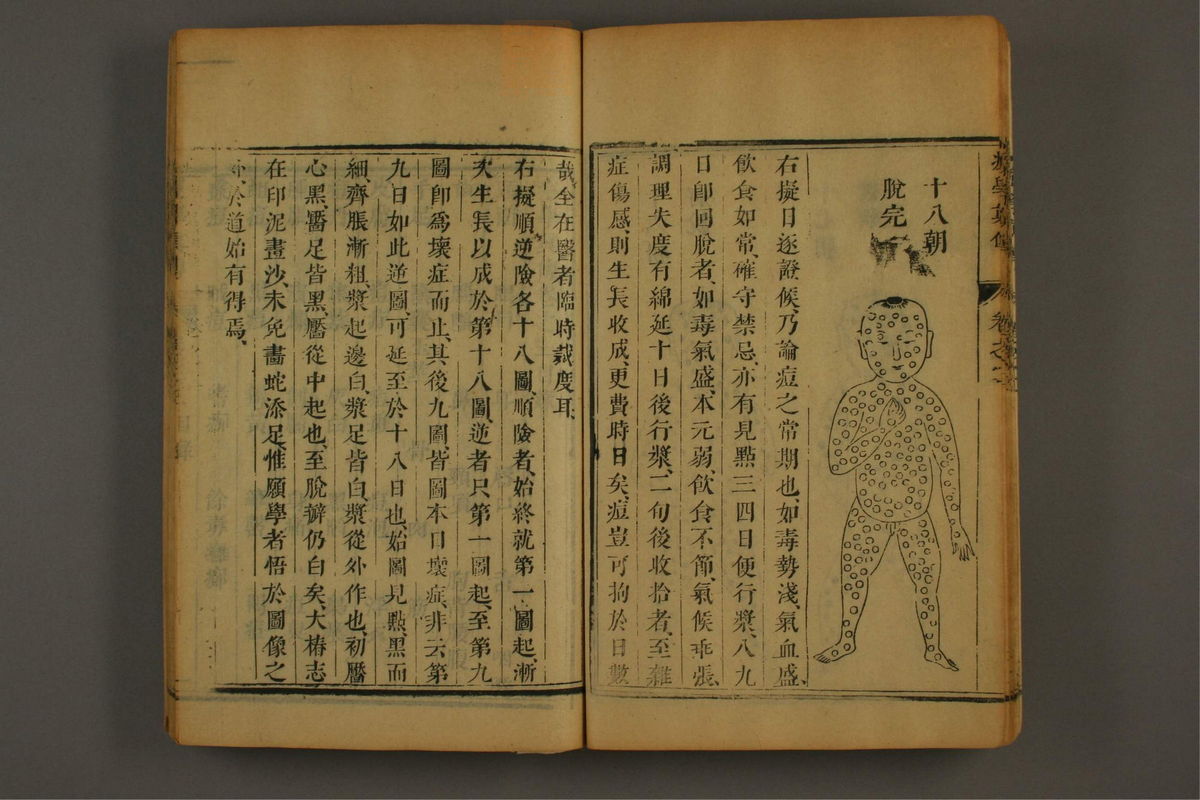 十八朝
脫完
右擬日逐證候、乃論痘之常期也、如毒勢淺、氣血盛、
飲食如常、確守禁忌、亦有見點三四日便行漿、八九
日卽回脫者、如毒氣盛、本元弱、飲食不節、氣候乖張、
調理失度、有綿延十日後行漿、二旬後收拾者、至雜
症傷感、則生長收成、更費時日矣、痘豈可拘於日數
哉、全在醫者臨時裁度耳、
右擬順逆險各十八圖、順險者、始終就第一圖起、漸
次生長以成於第十八圖、逆者只第一圖起、至第九
圖卽爲壞症而止、其後九圖皆圖本日壞症、非云第
九日如此逆圖、可延至於十八日也、始圖見點、黑而
細、齊脹漸粗、漿起邊白、漿足皆白、漿從外作也、初靨
心黑、靨足皆黑、靨從中起也、至脫瘢仍白矣、大椿志
在印泥畫沙、未免畵蛇添足、惟願學者悟於圖像之
外、於道始有得焉、